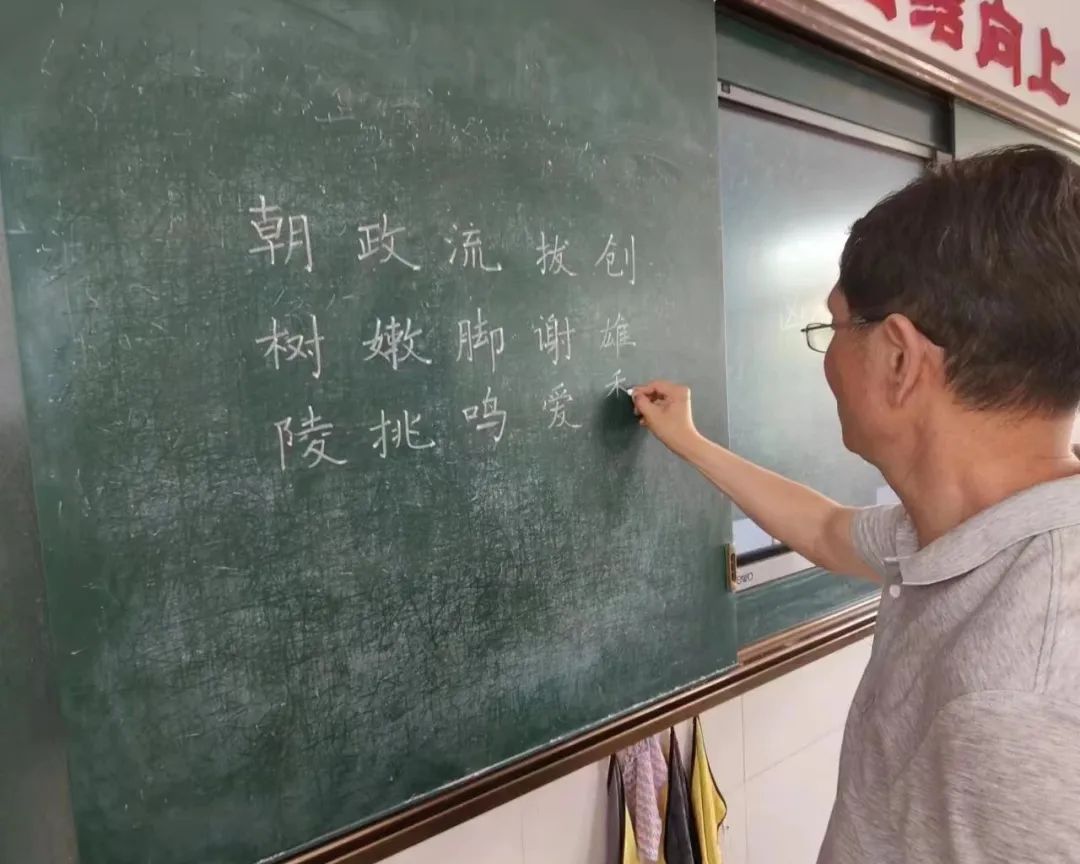 结向上
朝 政 流 拔 创
树 嫩 脚 谢 雄
陵 挑 鸣 爱 禾